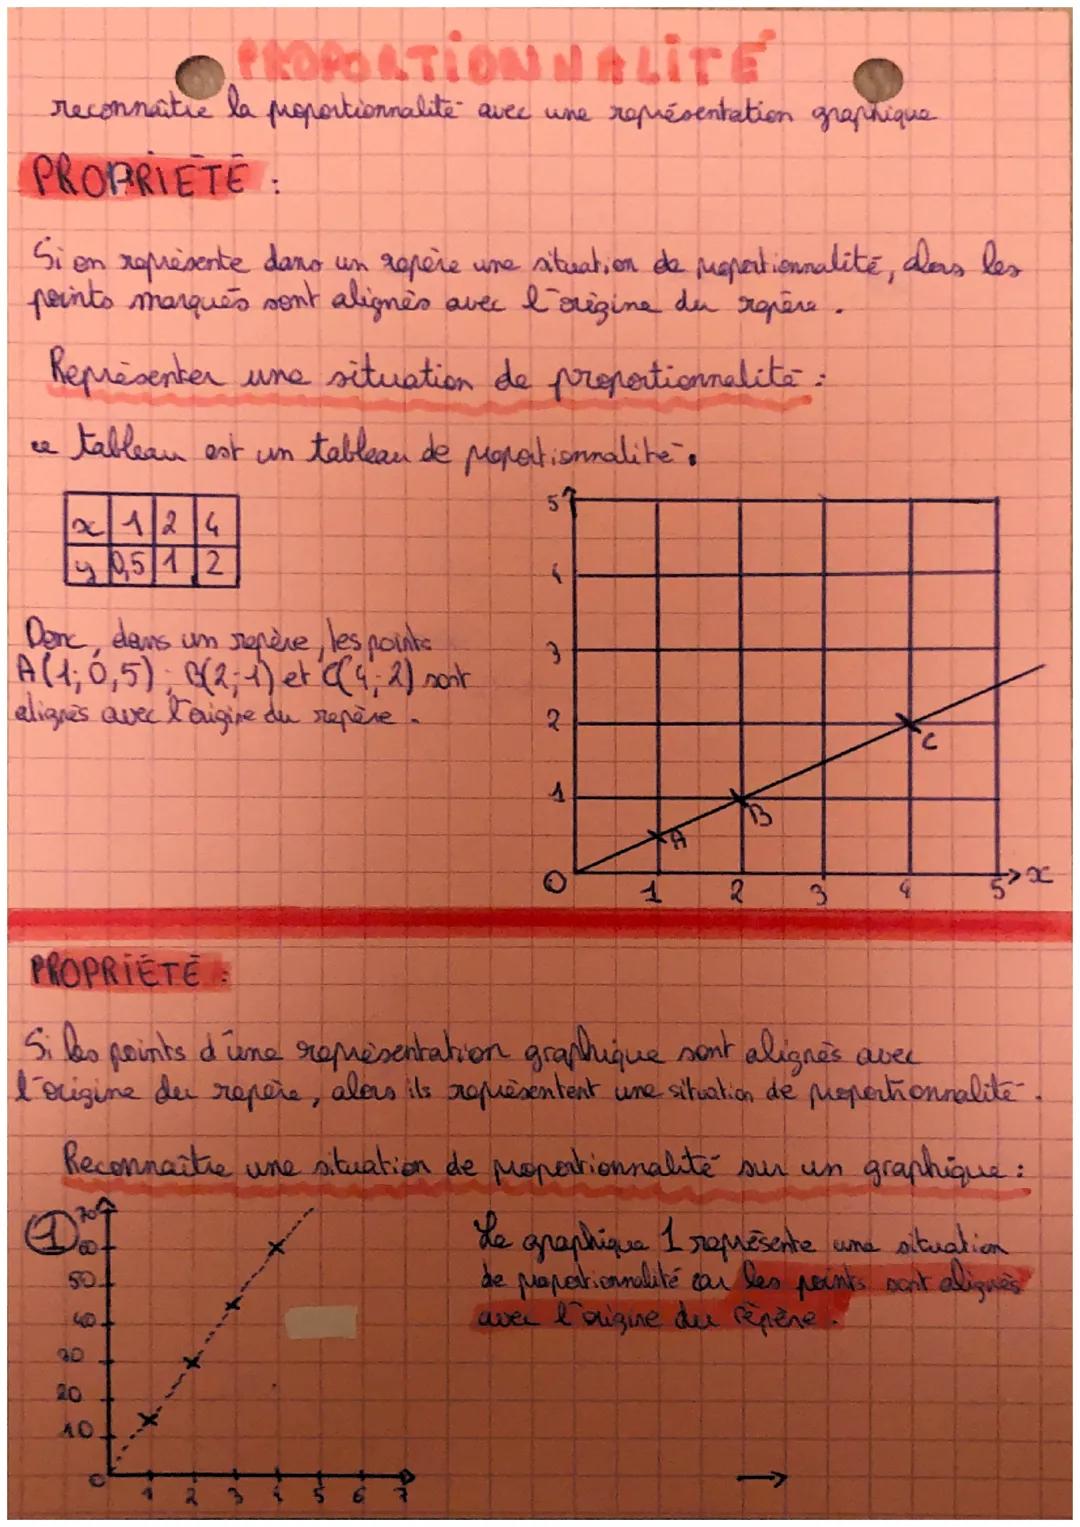 PROPORTIONNALITÉ
reconnaître la proportionnalité avec une représentation graphique
PROPRIÉTÉ :
Si on représente dans un repère une situation de proportionnalité, alors les
points marqués sont alignés avec l'origine du repère.
Représenter une situation de proportionnalité :
ce tableau est un tableau de proportionnalité.
x 1 2 4
y 0,5 1 2
Donc, dans un repère, les points
A(1; 0,5) ; B(2; 1) et C(4; 2) sont
alignés avec l'origine du repère.
5
4
3
2
1
A
B
C
0 1 2 3 4 5 x
PROPRIÉTÉ :
Si les points d'une représentation graphique sont alignés avec
l'origine du repère, alors ils représentent une situation de proportionnalité.
Reconnaître une situation de proportionnalité sur un graphique :
1
70
60
50
40
30
20
10
0 1 2 3 4 5 6 7
Le graphique 1 représente une situation
de proportionnalité car les points sont alignés
avec l'origine du repère.